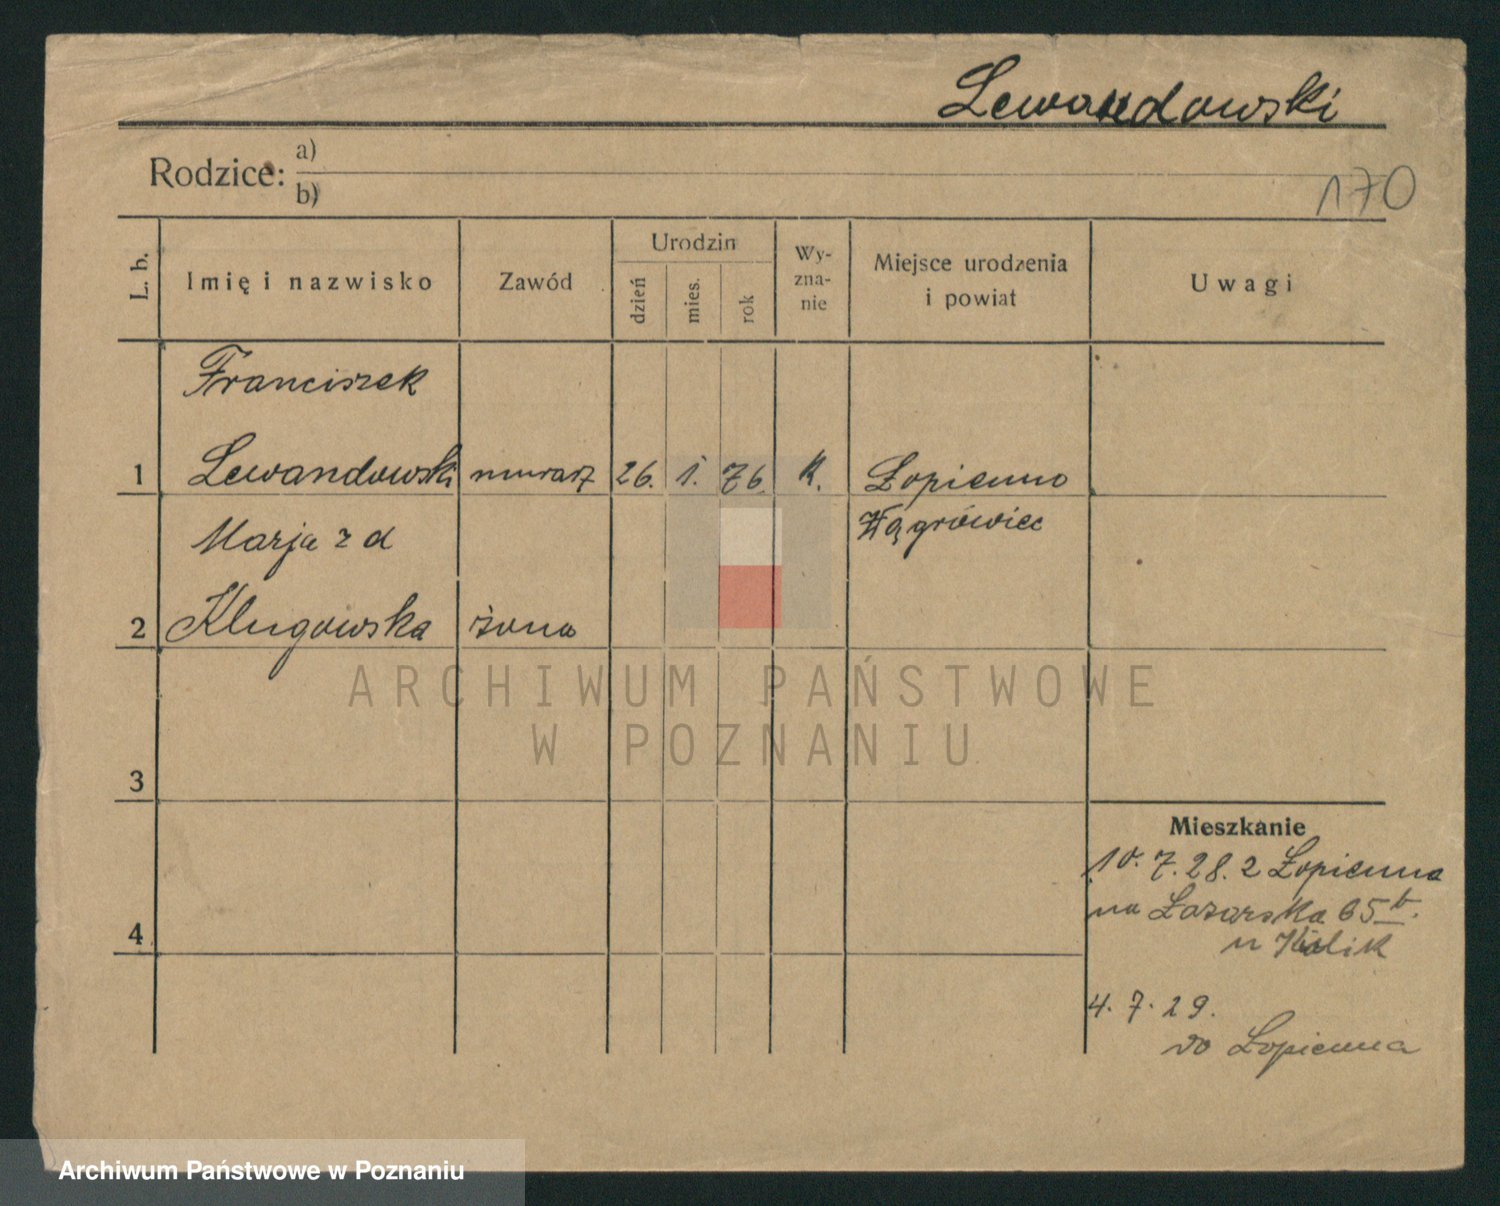 Lewandowski
Rodzice: a)
b)
170
L. b.
Imię i nazwisko
Zawód
Urodzin
dzień
mies.
rok
Wy-
zna-
nie
Miejsce urodzenia
i powiat
Uwagi
Franciszek
1 Lewandowski murarz 26. 1. 76. k. Łopienno
Wągrówiec
Marja z d
2 Klugowska żona
3
4
Mieszkanie
10. 7. 28. z Łopienna
na Łazarska 65 b.
u Kolik
4. 7. 29.
do Łopienna
ARCHIWUM PAŃSTWOWE
W POZNANIU
Archiwum Państwowe w Poznaniu